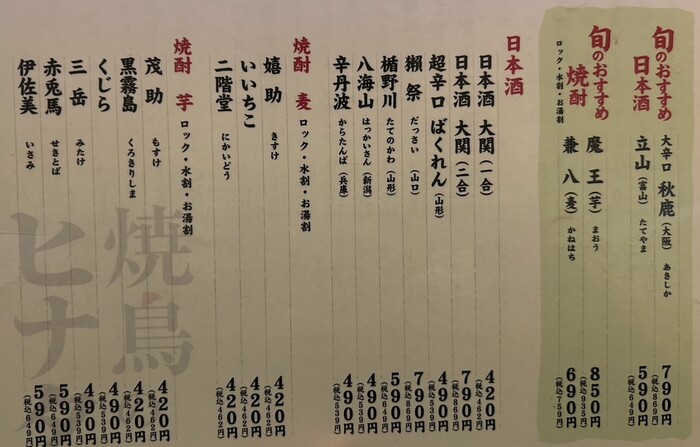 旬のおすすめ
日本酒
大辛口 秋鹿(大阪) あきしか 790円(税込869円)
立山(富山) たてやま 590円(税込649円)
旬のおすすめ
焼酎
ロック・水割・お湯割
魔王(芋) まおう 850円(税込935円)
兼八(麦) かねはち 690円(税込759円)
日本酒
日本酒 大関(一合) 420円(税込462円)
日本酒 大関(二合) 790円(税込869円)
超辛口 ばくれん(山形) 490円(税込539円)
獺祭 だっさい(山口) 790円(税込869円)
楯野川 たてのかわ(山形) 590円(税込649円)
八海山 はっかいさん(新潟) 490円(税込539円)
辛丹波 からたんば(兵庫) 490円(税込539円)
焼酎 麦 ロック・水割・お湯割
嬉助 きすけ 420円(税込462円)
いいちこ 420円(税込462円)
二階堂 にかいどう 420円(税込462円)
焼酎 芋 ロック・水割・お湯割
茂助 もすけ 420円(税込462円)
黒霧島 くろきりしま 420円(税込462円)
くじら 490円(税込539円)
三岳 みたけ 490円(税込539円)
赤兎馬 せきとば 590円(税込649円)
伊佐美 いさみ 590円(税込649円)
焼鳥
ヒナ